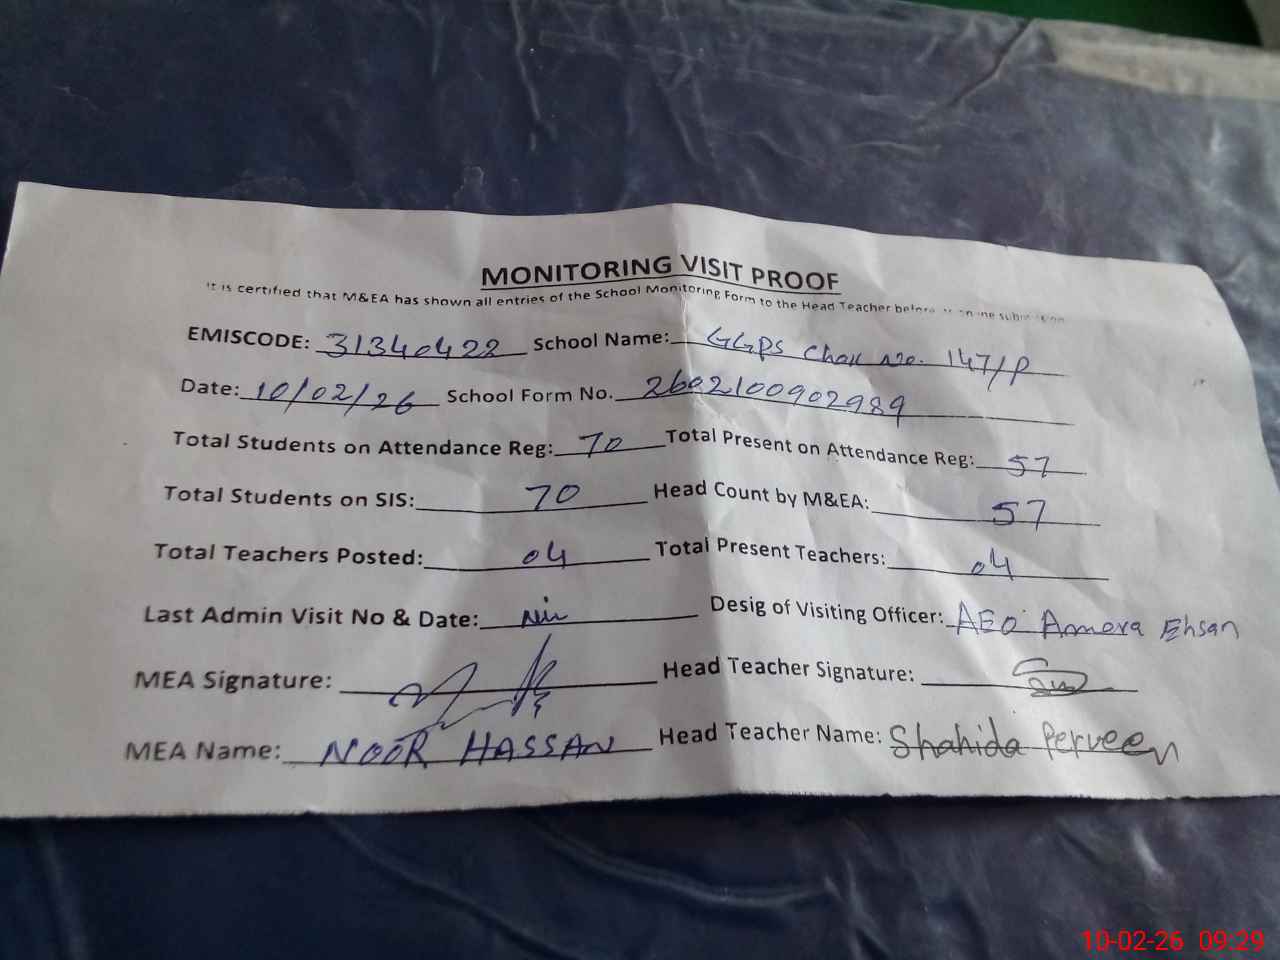 MONITORING VISIT PROOF
It is certified that M&EA has shown all entries of the School Monitoring Form to the Head Teacher before online submission
EMISCODE: 31340422 School Name: GGPS Chak No. 147/P
Date: 10/02/26 School Form No. 2602100902989
Total Students on Attendance Reg: 70 Total Present on Attendance Reg: 57
Total Students on SIS: 70 Head Count by M&EA: 57
Total Teachers Posted: 04 Total Present Teachers: 04
Last Admin Visit No & Date: Nil Desig of Visiting Officer: AEO Ameera Ehsan
MEA Signature: Head Teacher Signature:
MEA Name: NOOR HASSAN Head Teacher Name: Shahida Perveen
10-02-26 09:29